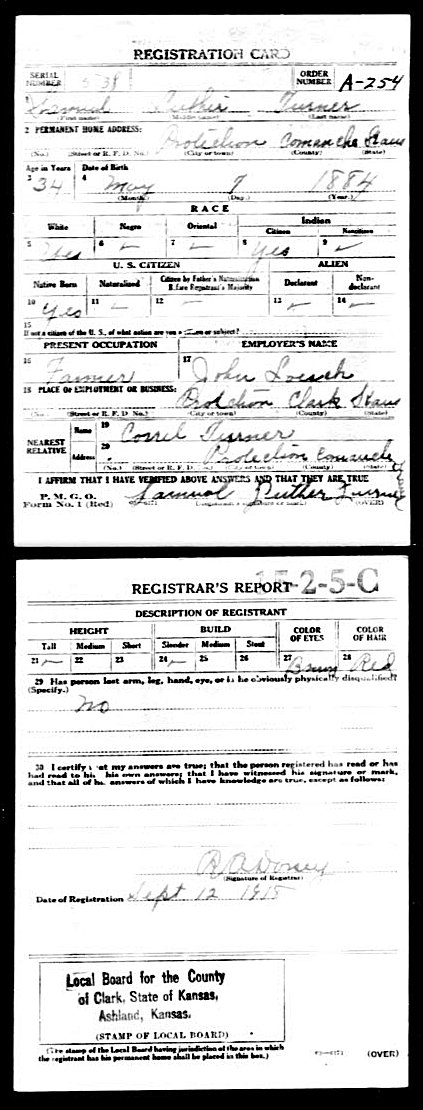 REGISTRATION CARD
SERIAL NUMBER 538 ORDER NUMBER A-254
1 Samuel Luther Turner
(First name) (Middle name) (Last name)
2 PERMANENT HOME ADDRESS:
Protection Comanche Kans
(No.) (Street or R. F. D. No.) (City or town) (County) (State)
Age in Years Date of Birth
3 34 4 May 9 1884
(Month.) (Day.) (Year.)
RACE
White Negro Oriental Indian
Citizen Noncitizen
5 Yes 6 – 7 – 8 Yes 9 –
U. S. CITIZEN ALIEN
Native Born Naturalized Citizen by Father's Naturalization Before Registrant's Majority Declarant Non-declarant
10 Yes 11 – 12 – 13 – 14 –
15
If not a citizen of the U. S., of what nation are you a citizen or subject?
PRESENT OCCUPATION EMPLOYER'S NAME
16 Farmer 17 John Loesch
18 PLACE OF EMPLOYMENT OR BUSINESS:
Protection Clark Kans
(No.) (Street or R. F. D. No.) (City or town) (County) (State)
NEAREST RELATIVE Name 19 Turner
Address 20 Protection Comanche
(No.) (Street or R. F. D. No.) (City or town) (County) (State)
I AFFIRM THAT I HAVE VERIFIED ABOVE ANSWERS AND THAT THEY ARE TRUE
P. M. G. O.
Form No. 1 (Red) Samuel Luther Turner
(Registrant's signature or mark) (OVER)
REGISTRAR'S REPORT 15-2-5-C
DESCRIPTION OF REGISTRANT
HEIGHT BUILD COLOR OF EYES COLOR OF HAIR
Tall Medium Short Slender Medium Stout
21 – 22 23 24 – 25 26 27 Brown 28 Red
29 Has person lost arm, leg, hand, eye, or is he obviously physically disqualified?
(Specify.)
No
30 I certify that my answers are true; that the person registered has read or has
had read to him his own answers; that I have witnessed his signature or mark,
and that all of his answers of which I have knowledge are true, except as follows:
R. A. Dorsey
(Signature of Registrar)
Date of Registration Sept 12 1918
Local Board for the County
of Clark, State of Kansas,
Ashland, Kansas.
(STAMP OF LOCAL BOARD)
(The stamp of the Local Board having jurisdiction of the area in which
the registrant has his permanent home shall be placed in this box.)
(OVER)